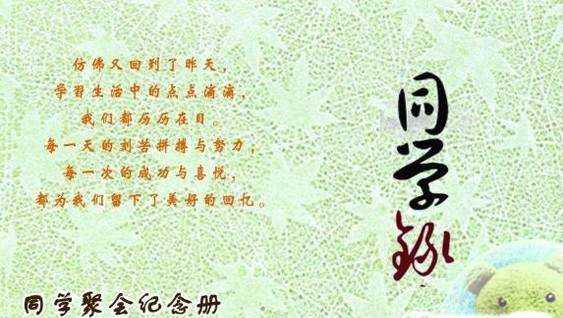 仿佛又回到了昨天，
学习生活中的点点滴滴，
我们都历历在目。
每一天的刻苦拼搏与努力，
每一次的成功与喜悦，
都为我们留下了美好的回忆。
同学录
同学聚会纪念册